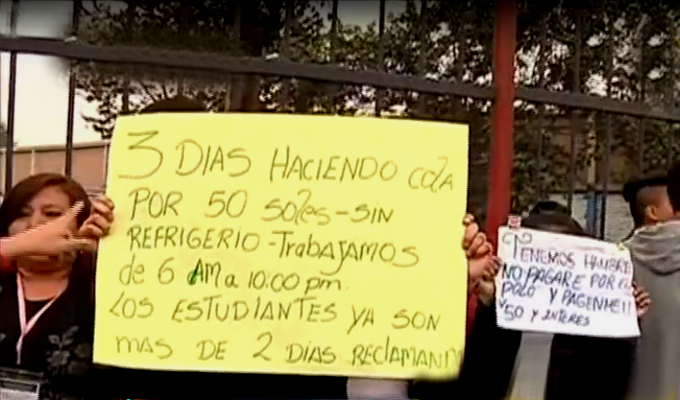 3 DIAS HACIENDO COLA
POR 50 SOLES - SIN
REFRIGERIO - TRABAJAMOS
de 6 AM a 10:00 pm.
LOS ESTUDIANTES YA SON
MAS DE 2 DIAS RECLAMAN
TENEMOS HAMBRE
NO PAGARE POR EL
POLO Y PAGENME!!
50 Y INTERES